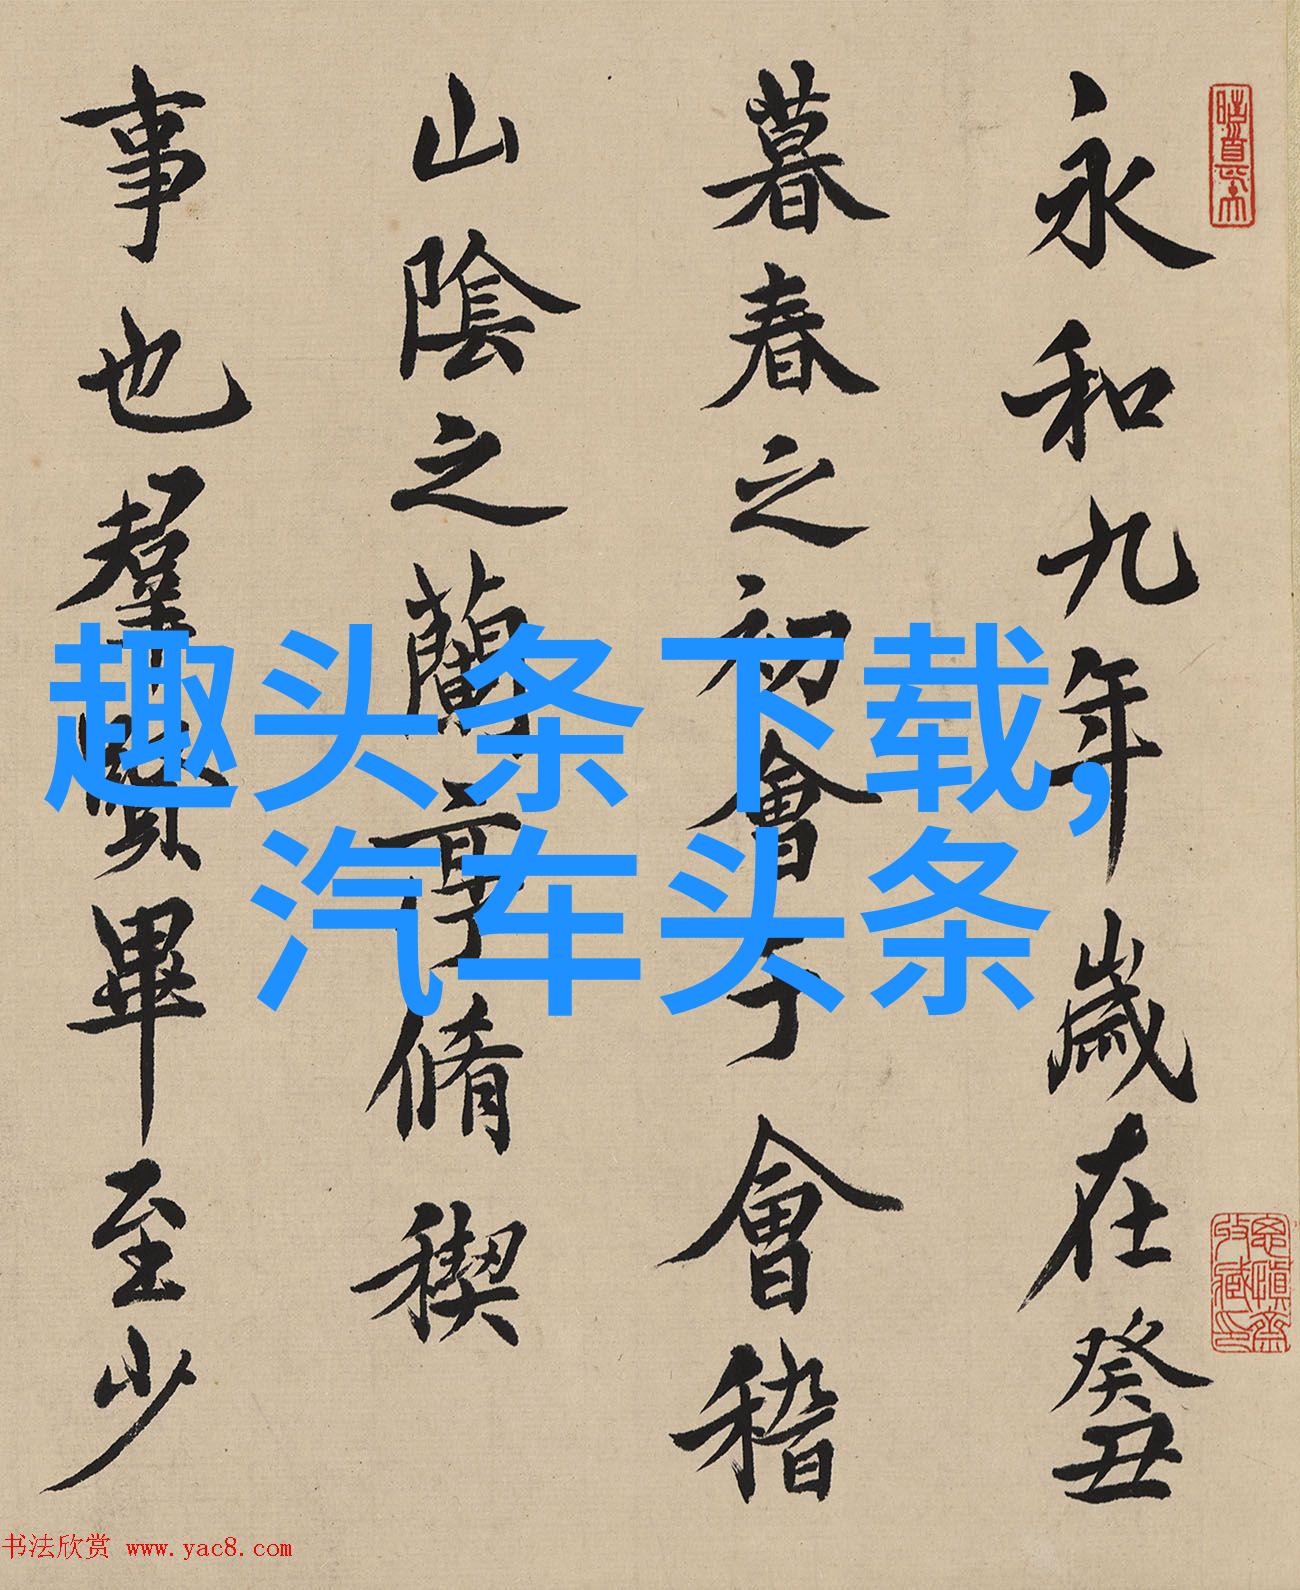 永和九年歲在癸丑
暮春之初會于會稽
山陰之蘭亭脩稧
事也羣賢畢至少
趣头条下载,
汽车头条
书法欣赏 www.yac8.com